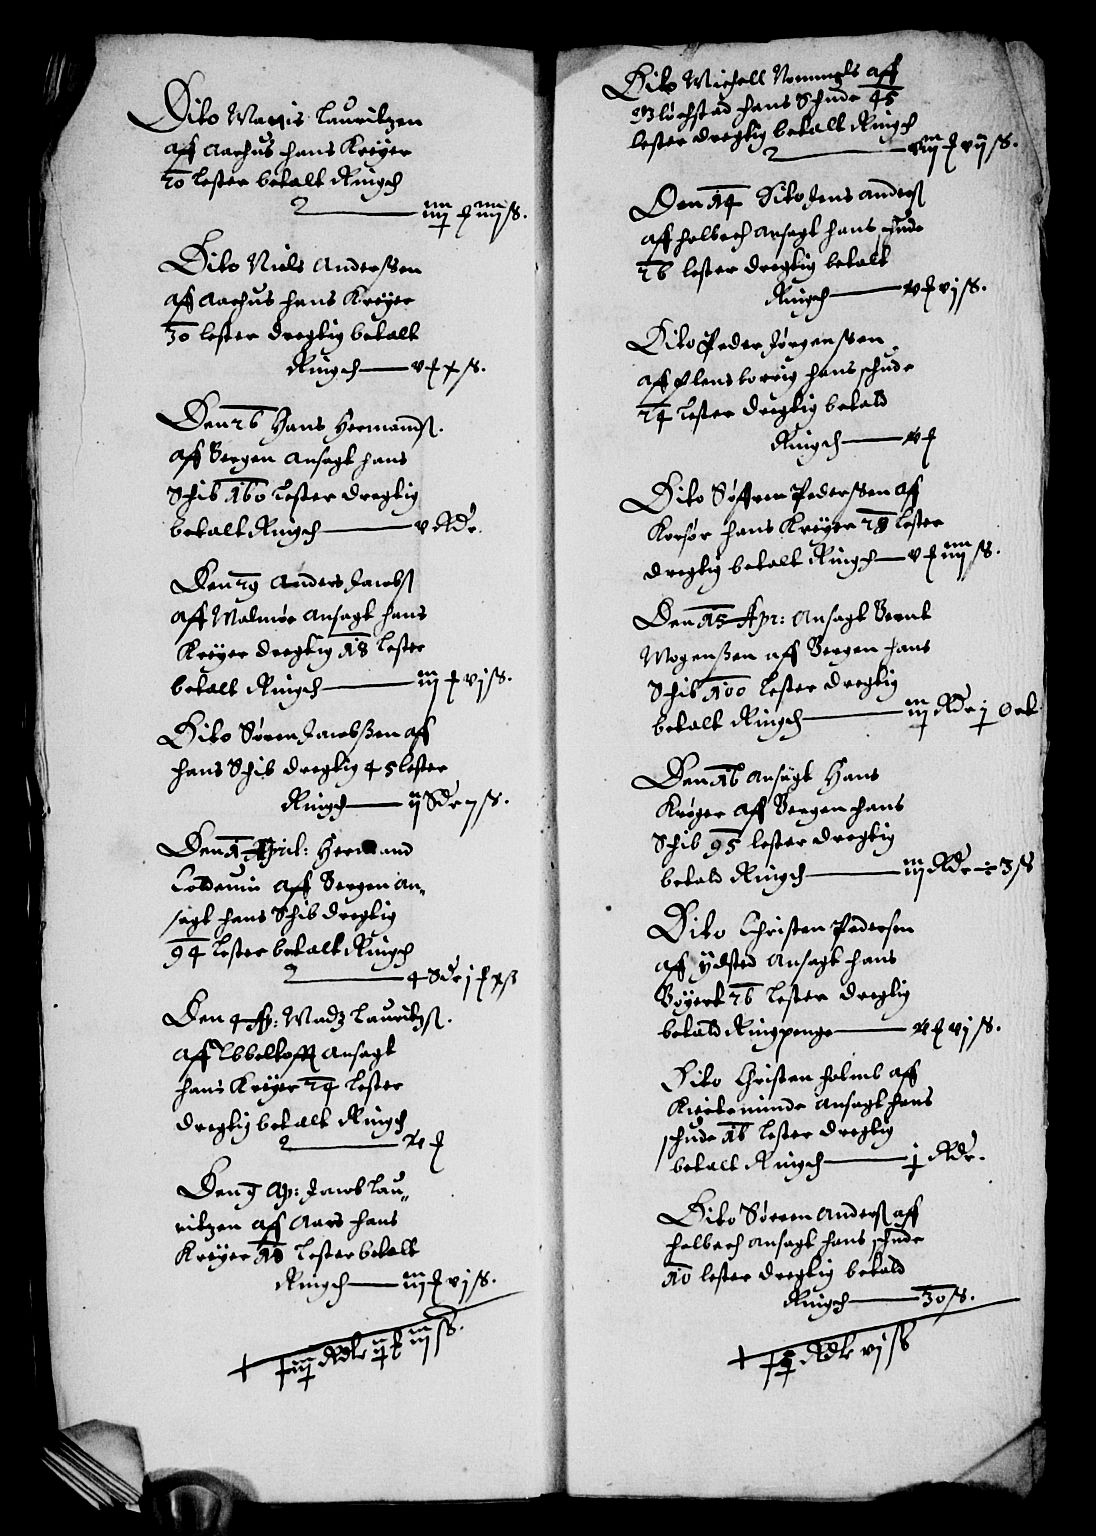 Dito Mattis Lauritzen
aff Aarhus hans Kreyer
20 lester betalt Ringch
iiij iiij ß.
Dito Niels Anderssen
aff Aarhus hans Kreyer
30 lester dregtig betalt
Ringch v x ß.
Den 26 Hans Hermands.
aff Bergen Ansagt hans
Schib 160 lester dregtig
betalt Ringch v Rdr.
Den 29 Anders Jacobs
aff Malmøe Ansagt hans
Kreyer dregtig 18 lester
betalt Ringch iij vj ß.
Dito Søren Jacobßen aff
hans Schib dregtig 45 lester
Ringch ij Sdr 7 ß.
Den 1 April: Hermand
aff Bergen An-
sagt hans Schib dregtig
94 lester betalt Ringch
4 Sdr j x ß
Den 4 Ap: Madz Lauritzs.
aff Ebbeltofft Ansagt
hans Kreyer 24 lester
dregtig betalt Ringch
Den 9 Ap: Jacob Lau-
ritzen aff Aars hans
Kreyer 18 lester betalt
Ringch iij vj ß.
Dito Michell aff
hans Schude 45
lester dregtig betalt Ringch
vij ß.
Den 14 Dito Jens Anders
aff holbech Ansagt hans schude
26 lester dregtig betalt
Ringch vj ß.
Dito Peder Jørgenssen
aff Flensborrig hans schude
24 lester dregtig betald
Ringch
Dito Søffren Pederssen aff
Korsør hans Kreyer 28 lester
dregtig betalt Ringch v iiij ß.
Den 15 Apr: Ansagt Bernt
Mogenßen aff Bergen hans
Schib 100 lester dregtig
betalt Ringch iij Rdr j Ort.
Den 16 Ansagt Hans
Krøger aff Bergen hans
Schib 95 lester dregtig
betald Ringch iij Rdr ÷ 3 ß
Dito Christen Pedersen
aff Ydsted Ansagt hans
Bøyert 26 lester dregtig
betald Ringpenge vj ß.
Dito Christen holmb aff
Kierteminde Ansagt hans
schude 16 lester dregtig
betalt Ringch j Rdr.
Dito Søren Anders aff
holbech Ansagt hans schude
10 lester dregtig betald
Ringch 30 ß.
Rdlr vj ß